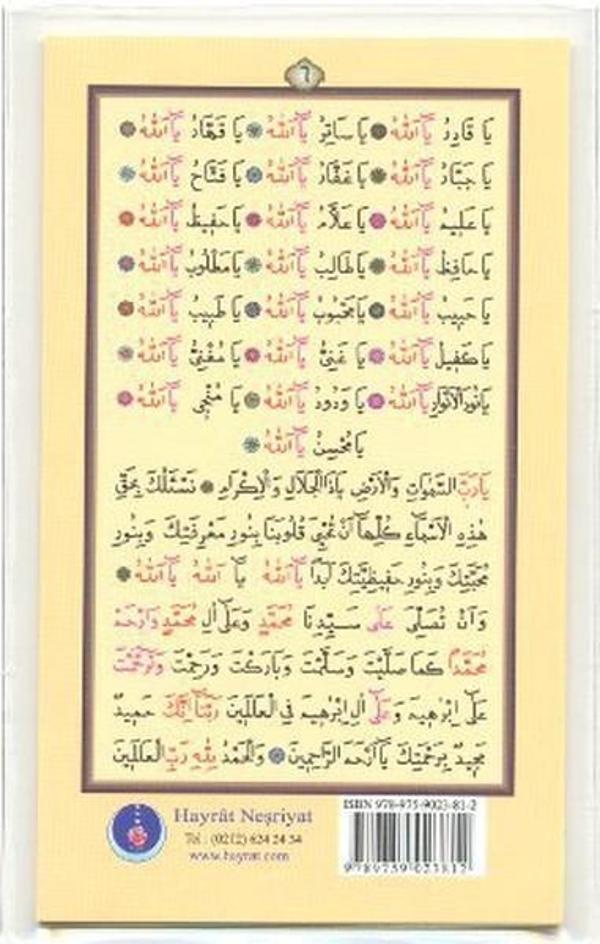 ٦
يَا قَادِرُ يَا اَللّٰهُ يَا سَاتِرُ يَا اَللّٰهُ يَا قَهَّارُ يَا اَللّٰهُ
يَا جَبَّارُ يَا اَللّٰهُ يَا غَفَّارُ يَا اَللّٰهُ يَا فَتَّاحُ يَا اَللّٰهُ
يَا عَلِيمُ يَا اَللّٰهُ يَا عَلَّامُ يَا اَللّٰهُ يَا حَفِيظُ يَا اَللّٰهُ
يَا حَافِظُ يَا اَللّٰهُ يَا طَالِبُ يَا اَللّٰهُ يَا مَطْلُوبُ يَا اَللّٰهُ
يَا حَبِيبُ يَا اَللّٰهُ يَا مَحْبُوبُ يَا اَللّٰهُ يَا طَبِيبُ يَا اَللّٰهُ
يَا كَفِيلُ يَا اَللّٰهُ يَا غَنِيُّ يَا اَللّٰهُ يَا مُغْنِيُّ يَا اَللّٰهُ
يَا نُورَ الْاَنْوَارِ يَا اَللّٰهُ يَا وَدُودُ يَا اَللّٰهُ يَا مُنْجِى يَا اَللّٰهُ
يَا مُحْسِنُ يَا اَللّٰهُ
يَا رَبَّ السَّمٰوَاتِ وَالْاَرْضِ يَا ذَا الْجَلَالِ وَالْاِكْرَامِ نَسْئَلُكَ بِحَقِّ
هٰذِهِ الْاَسْمَاءِ كُلِّهَا اَنْ تُحْيِىَ قُلُوبَنَا بِنُورِ مَعْرِفَتِكَ وَبِنُورِ
مَحَبَّتِكَ وَبِنُورِ حَفِيظِيَّتِكَ اَبَدًا يَا اَللّٰهُ يَا اَللّٰهُ يَا اَللّٰهُ
وَاَنْ تُصَلِّىَ عَلٰى سَيِّدِنَا مُحَمَّدٍ وَعَلٰى اٰلِ مُحَمَّدٍ وَارْحَمْ
مُحَمَّدًا كَمَا صَلَّيْتَ وَسَلَّمْتَ وَبَارَكْتَ وَرَحِمْتَ وَتَرَحَّمْتَ
عَلٰى اِبْرٰهِيمَ وَعَلٰى اٰلِ اِبْرٰهِيمَ فِى الْعَالَمِينَ رَبَّنَا اِنَّكَ حَمِيدٌ
مَجِيدٌ بِرَحْمَتِكَ يَا اَرْحَمَ الرَّاحِمِينَ وَالْحَمْدُ لِلّٰهِ رَبِّ الْعَالَمِينَ
Hayrât Neşriyat
Tel : (0212) 624 24 34
www.hayrat.com
ISBN 978-975-9023-81-2
9 789759 023812